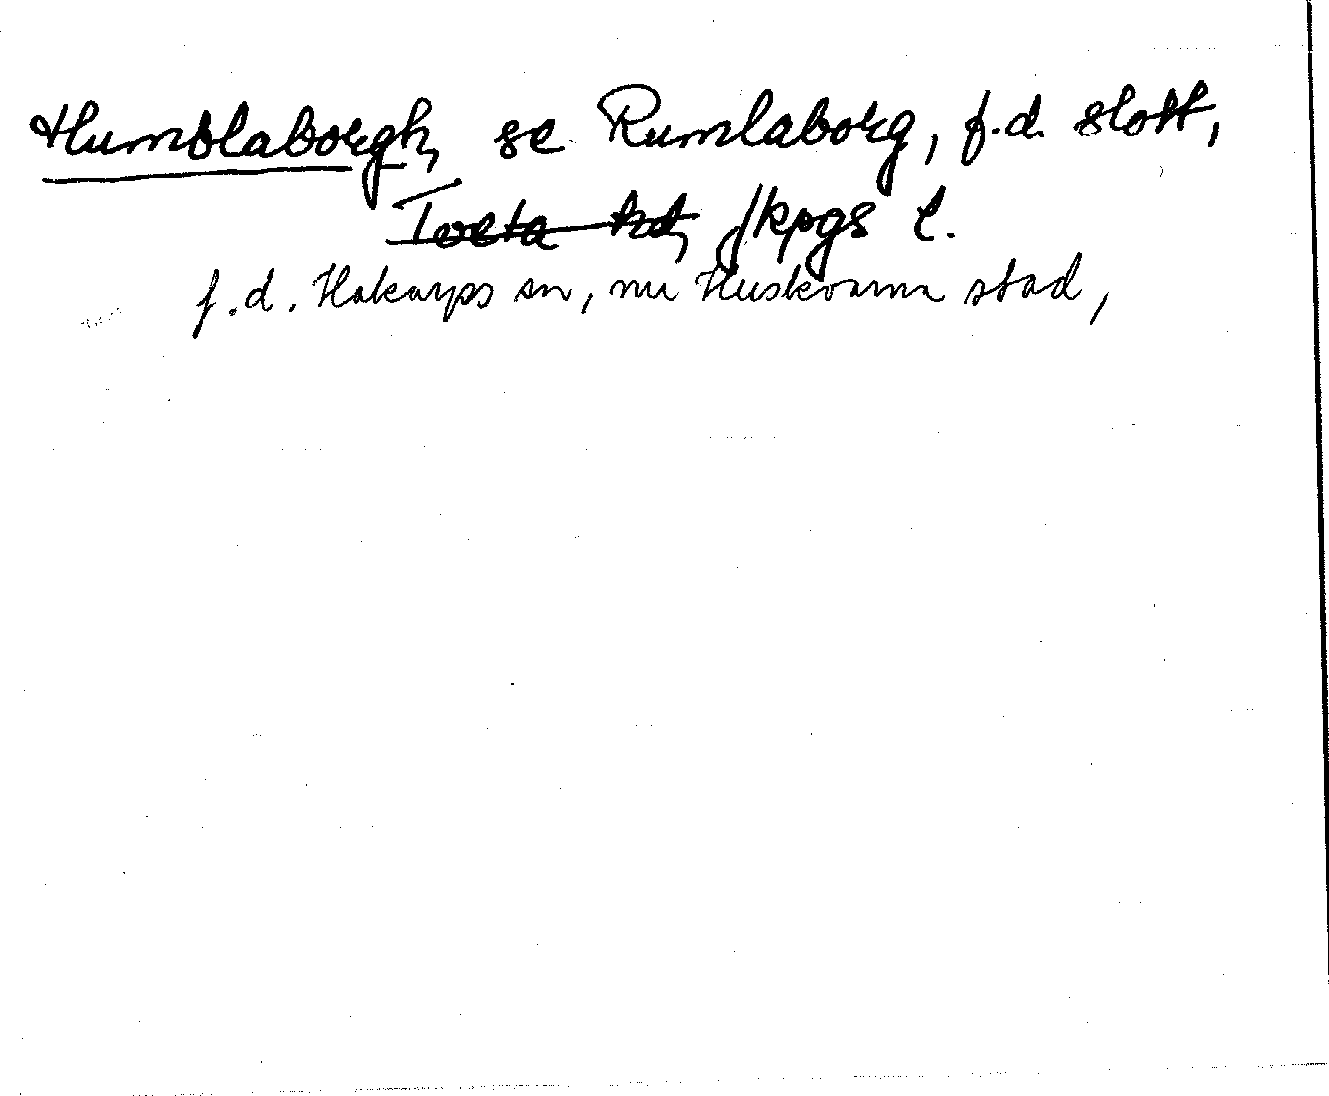 Humblaborgh, se Rumlaborg, f.d. slott,
Tveta hd, Jkpgs l.
f.d. Hakarps sn, nu Huskvarna stad,